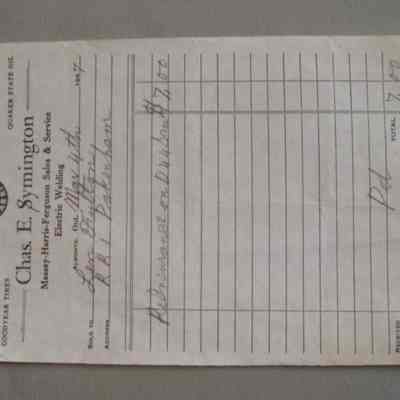 GOODYEAR TIRES QUAKER STATE OIL
Chas. E. Symington
Massey-Harris-Ferguson Sales & Service
Electric Welding
Almonte, Ont. May 4th 1957
Sold to
Address R R 1 Pakenham
on $ 7.00
Pd
Received TOTAL 7.00